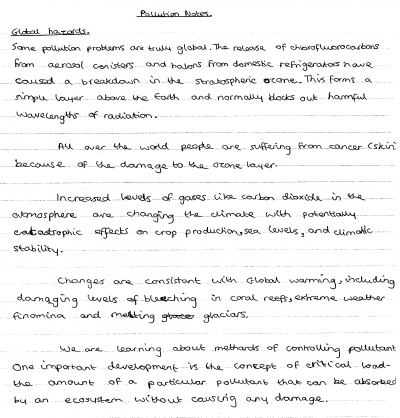 Pollution Notes.
Global hazards.
Some pollution problems are truly global. The release of chlorofluorocarbons
from aerosol conisters and halons from domestic refrigerators have
caused a breakdown in the stratospheric ozone. This forms a
simple layer above the Earth and normally blocks out harmful
wavelengths of radiation.
All over the world people are suffering from cancer (skin)
because of the damage to the ozone layer.
Increased levels of gases like carbon dioxide in the
atmosphere are changing the climate with potentially
catastrophic effects on crop production, sea levels, and climatic
stability.
Changes are consistent with Global warming, including
damaging levels of bleeching in coral reefs, extreme weather
finomina and melting glaciars.
We are learning about methards of controlling pollutant
One important development is the concept of critical load-
the amount of a particular pollutant that can be absorbed
by an ecosystem without causing any damage.